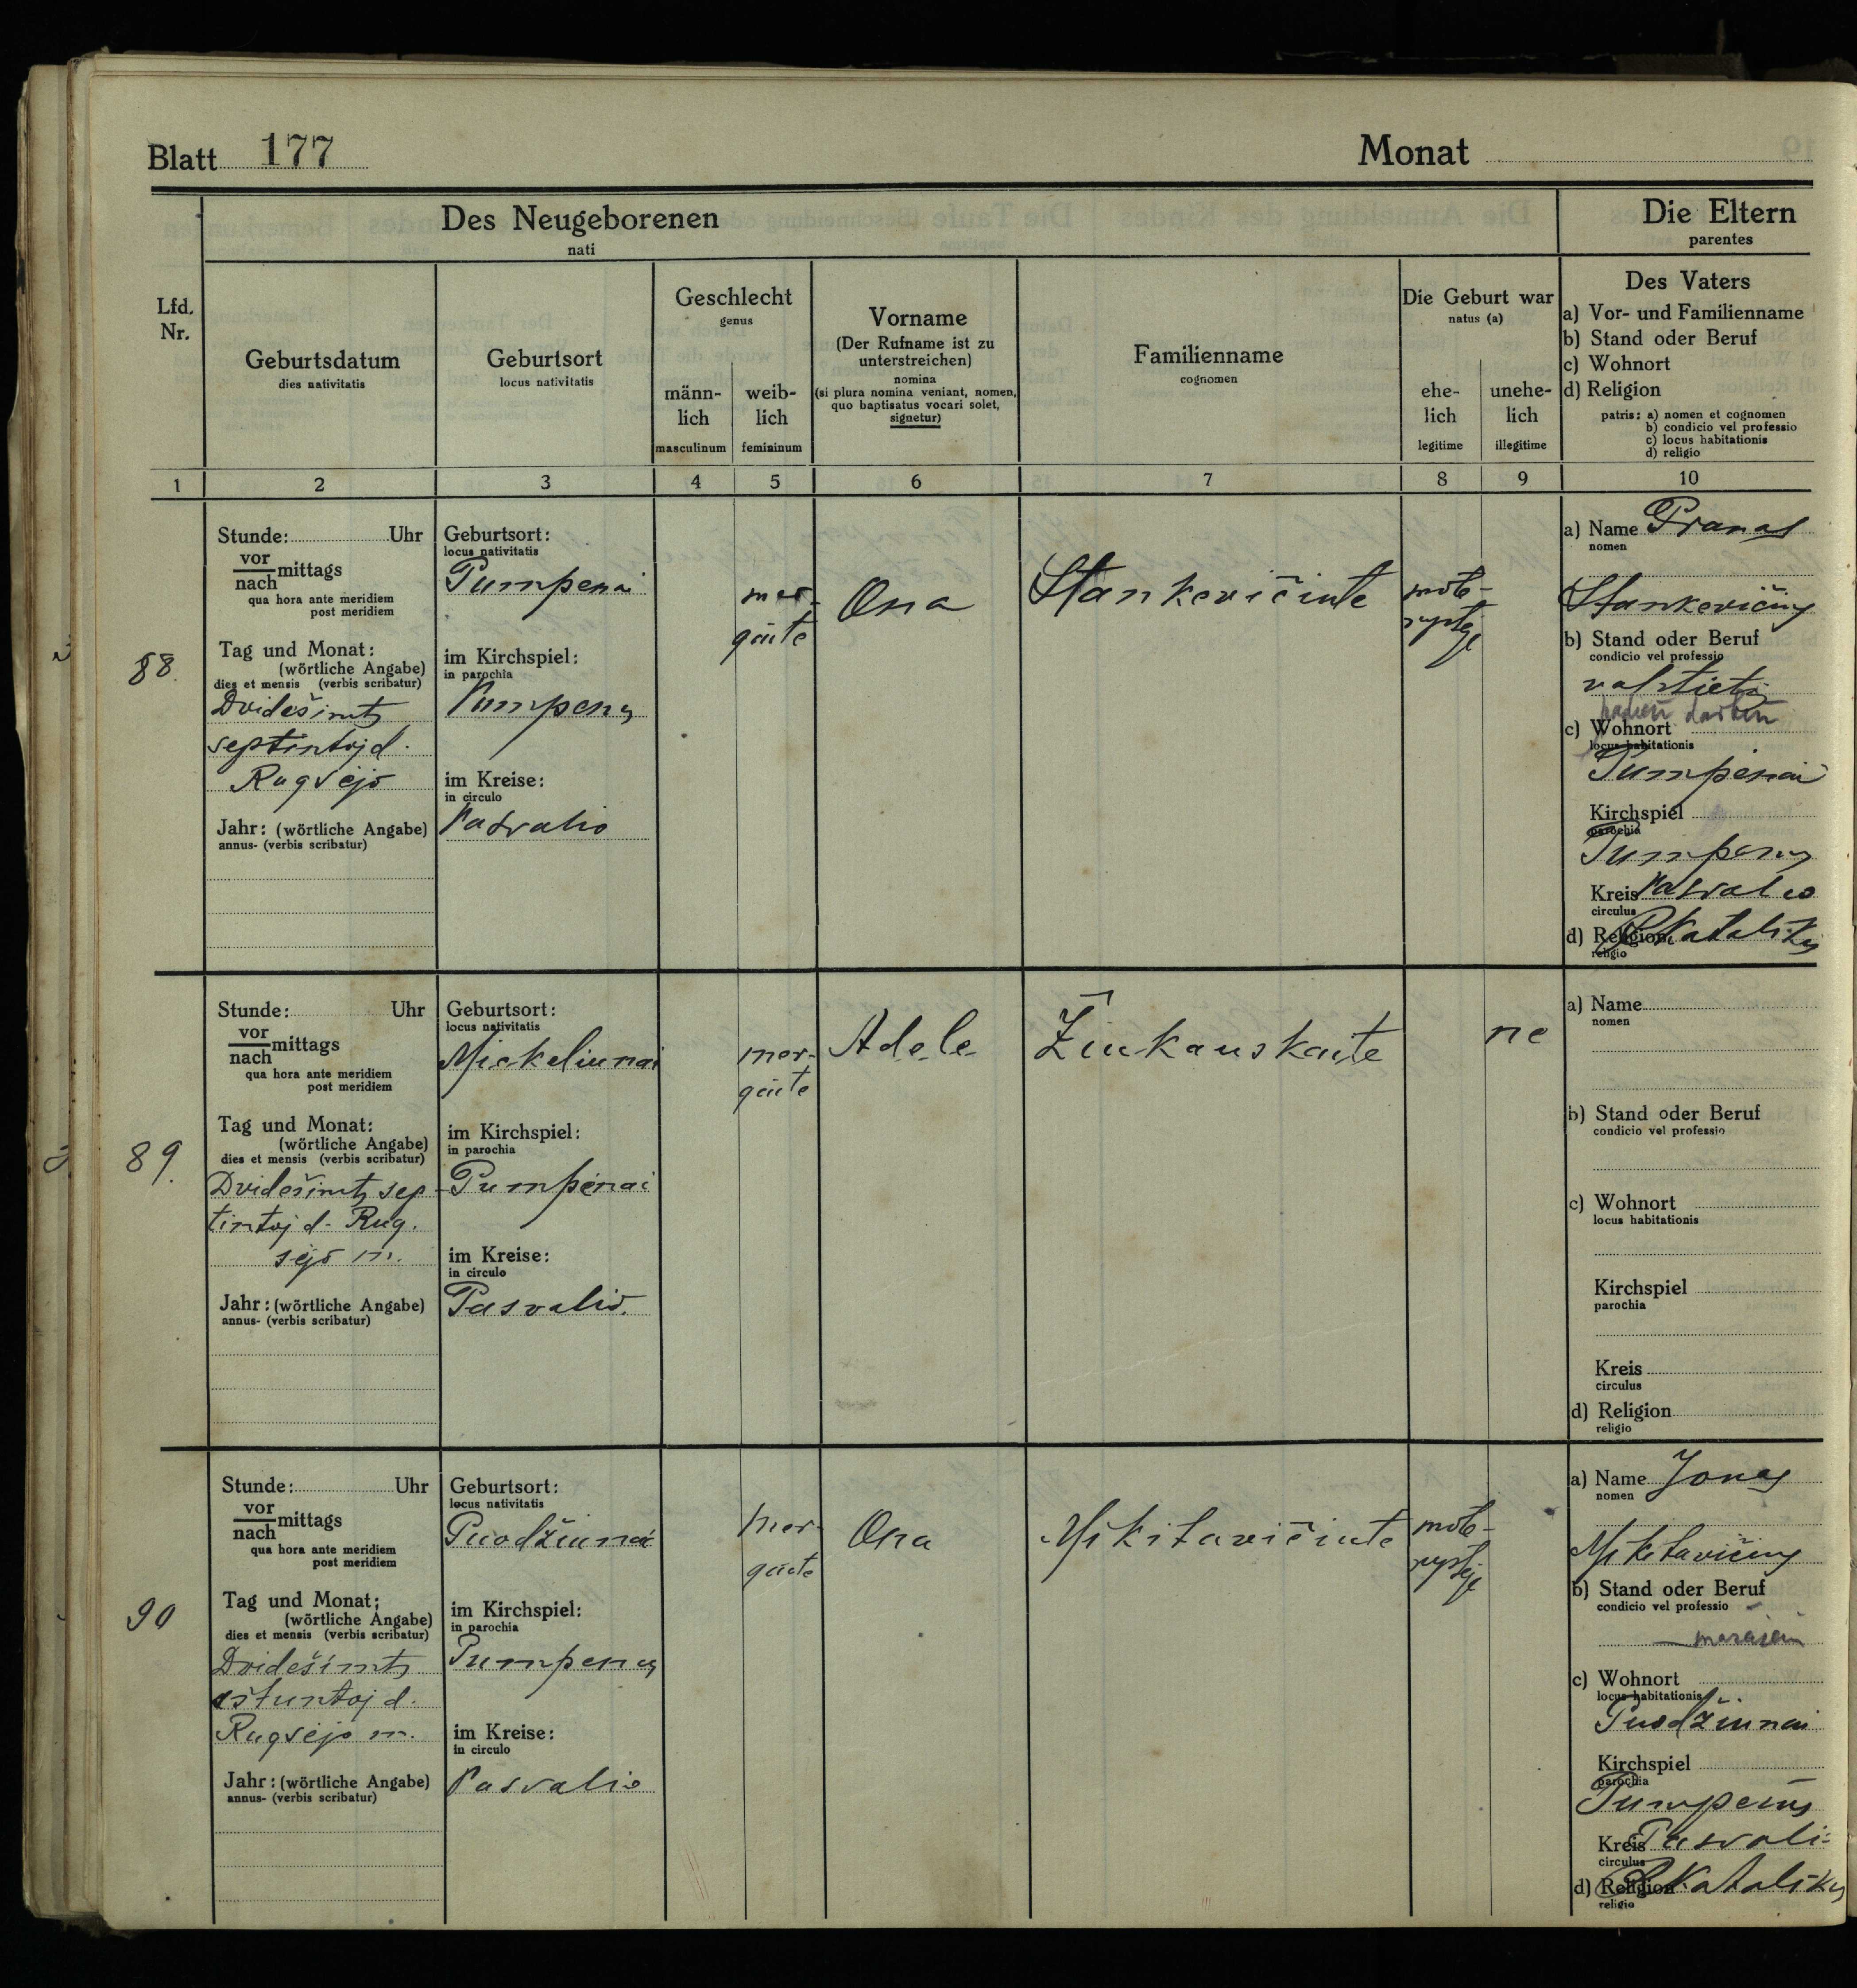 Blatt 177
Monat
Des Neugeborenen
nati
Die Eltern
parentes
Lfd.
Nr.
Geburtsdatum
dies nativitatis
Geburtsort
locus nativitatis
Geschlecht
genus
männ-
lich
masculinum
weib-
lich
femininum
Vorname
(Der Rufname ist zu
unterstreichen)
nomina
(si plura nomina veniant, nomen,
quo baptisatus vocari solet,
signetur)
Familienname
cognomen
Die Geburt war
natus (a)
ehe-
lich
legitime
unehe-
lich
illegitime
Des Vaters
a) Vor- und Familienname
b) Stand oder Beruf
c) Wohnort
d) Religion
patris: a) nomen et cognomen
b) condicio vel professio
c) locus habitationis
d) religio
1 2 3 4 5 6 7 8 9 10
88.
Stunde: Uhr
vor
nach mittags
qua hora ante meridiem
post meridiem
Tag und Monat:
(wörtliche Angabe)
dies et mensis (verbis scribatur)
Dvidešimts
septintoj d.
Rugsėjo
Jahr: (wörtliche Angabe)
annus- (verbis scribatur)
Geburtsort:
locus nativitatis
Pumpenai
im Kirchspiel:
in parochia
Pumpenų
im Kreise:
in circulo
Pasvalio
mer-
gaitė
Ona
Stankevičiute
mote-
rystėje
a) Name Pranas
nomen
Stankevičius
b) Stand oder Beruf
condicio vel professio
valstietis
c) Wohnort
locus habitationis
Pumpenai
Kirchspiel
parochia
Pumpenų
Kreis Pasvalio
circulus
d) Religion R Katalikų
religio
89.
Stunde: Uhr
vor
nach mittags
qua hora ante meridiem
post meridiem
Tag und Monat:
(wörtliche Angabe)
dies et mensis (verbis scribatur)
Dvidešimts sep-
tintoj d. Rug.
sėjo m.
Jahr: (wörtliche Angabe)
annus- (verbis scribatur)
Geburtsort:
locus nativitatis
Mickeliunai
im Kirchspiel:
in parochia
Pumpėnai
im Kreise:
in circulo
Pasvalio.
mer-
gaitė
Adele
Žiukauskaite
ne
a) Name
nomen
b) Stand oder Beruf
condicio vel professio
c) Wohnort
locus habitationis
Kirchspiel
parochia
Kreis
circulus
d) Religion
religio
90
Stunde: Uhr
vor
nach mittags
qua hora ante meridiem
post meridiem
Tag und Monat:
(wörtliche Angabe)
dies et mensis (verbis scribatur)
Dvidešimts
aštuntoj d.
Rugsėjo m.
Jahr: (wörtliche Angabe)
annus- (verbis scribatur)
Geburtsort:
locus nativitatis
Puodžiunai
im Kirchspiel:
in parochia
Pumpenų
im Kreise:
in circulo
Pasvalio
Mer-
gaite
Ona
Mikitavičiute
mote-
rystėje
a) Name Jonas
nomen
Mikitavičius
b) Stand oder Beruf
condicio vel professio
c) Wohnort
locus habitationis
Puodžiunai
Kirchspiel
parochia
Pumpėnų
Kreis Pasvali-
circulus
d) Religion R Katalikų
religio